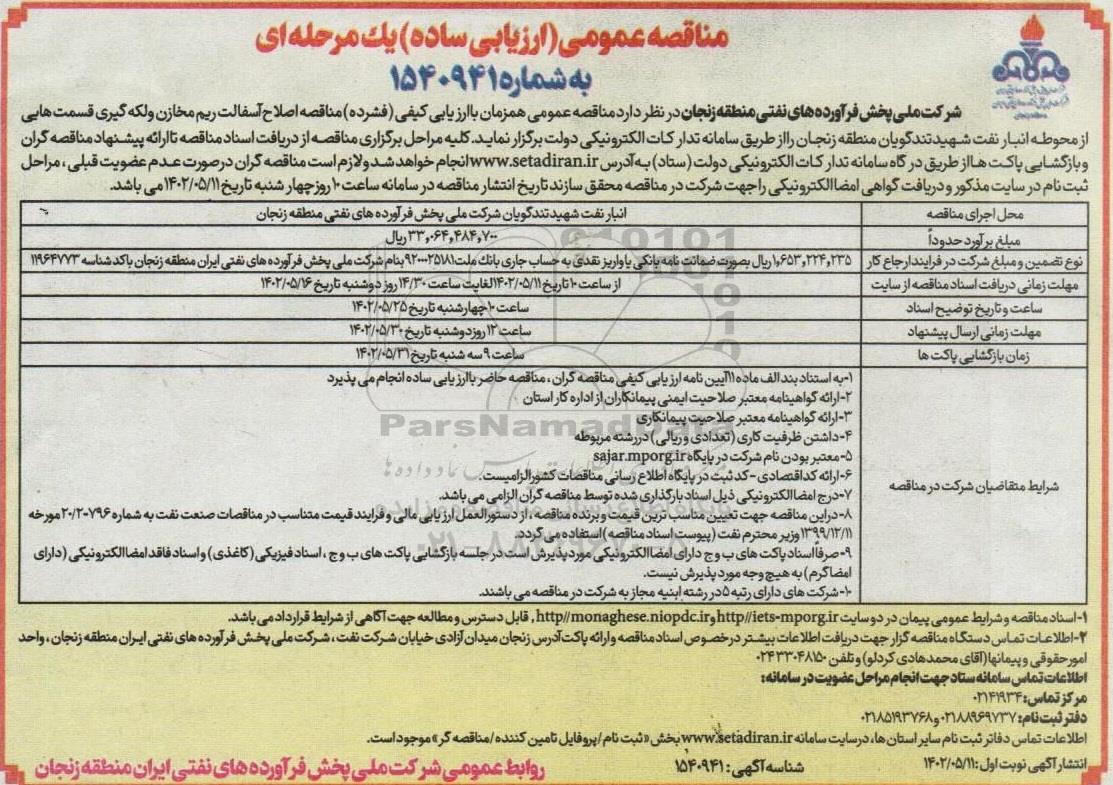 مناقصه عمومی (ارزیابی ساده) یک مرحله ای
به شماره ۱۵۴۰۹۴۱
شرکت ملی پخش فرآورده های نفتی منطقه زنجان در نظر دارد مناقصه عمومی همزمان با ارزیابی کیفی (فشرده) مناقصه اصلاح آسفالت ریم مخازن ولکه گیری قسمت هایی
از محوطه انبار نفت شهید تندگویان منطقه زنجان را از طریق سامانه تدارکات الکترونیکی دولت برگزار نماید. کلیه مراحل برگزاری مناقصه از دریافت اسناد مناقصه تا ارائه پیشنهاد مناقصه گران
و بازگشایی پاکت ها از طریق درگاه سامانه تدارکات الکترونیکی دولت (ستاد) به آدرس www.setadiran.ir انجام خواهد شد و لازم است مناقصه گران در صورت عدم عضویت قبلی، مراحل
ثبت نام در سایت مذکور و دریافت گواهی امضا الکترونیکی را جهت شرکت در مناقصه محقق سازند تاریخ انتشار مناقصه در سامانه ساعت ۱۰ روز چهار شنبه تاریخ ۱۴۰۲/۰۵/۱۱ می باشد.
محل اجرای مناقصه انبار نفت شهید تندگویان شرکت ملی پخش فرآورده های نفتی منطقه زنجان
مبلغ برآورد حدوداً ۳۳,۰۶۴,۴۸۴,۷۰۰ ریال
نوع تضمین و مبلغ شرکت در فرایند ارجاع کار ۱,۶۵۳,۲۲۴,۲۳۵ ریال بصورت ضمانت نامه بانکی یا واریز نقدی به حساب جاری بانک ملت ۹۲۰۰۰۲۵۱۸۱ بنام شرکت ملی پخش فرآورده های نفتی ایران منطقه زنجان با کد شناسه ۱۱۹۶۴۷۷۳
مهلت زمانی دریافت اسناد مناقصه از سایت از ساعت ۱۰ تاریخ ۱۴۰۲/۰۵/۱۱ لغایت ساعت ۱۴/۳۰ روز دوشنبه تاریخ ۱۴۰۲/۰۵/۱۶
ساعت و تاریخ توضیح اسناد ساعت ۱۰ چهارشنبه تاریخ ۱۴۰۲/۰۵/۲۵
مهلت زمانی ارسال پیشنهاد ساعت ۱۲ روز دوشنبه تاریخ ۱۴۰۲/۰۵/۳۰
زمان بازگشایی پاکت ها ساعت ۹ سه شنبه تاریخ ۱۴۰۲/۰۵/۳۱
شرایط متقاضیان شرکت در مناقصه
۱-به استناد بند الف ماده ۱۱ آیین نامه ارزیابی کیفی مناقصه گران، مناقصه حاضر با ارزیابی ساده انجام می پذیرد
۲-ارائه گواهینامه معتبر صلاحیت ایمنی پیمانکاران از اداره کار استان
۳-ارائه گواهینامه معتبر صلاحیت پیمانکاری
۴-داشتن ظرفیت کاری (تعدادی و ریالی) در رشته مربوطه
۵-معتبر بودن نام شرکت در پایگاه sajar.mporg.ir
۶-ارائه کد اقتصادی - کد ثبت در پایگاه اطلاع رسانی مناقصات کشور الزامیست.
۷-درج امضا الکترونیکی ذیل اسناد بارگذاری شده توسط مناقصه گران الزامی می باشد.
۸-در این مناقصه جهت تعیین مناسب ترین قیمت و برنده مناقصه، از دستورالعمل ارزیابی مالی و فرایند قیمت متناسب در مناقصات صنعت نفت به شماره ۲۰/۲-۷۹۶ مورخه
۱۳۹۹/۱۲/۱۱ وزیر محترم نفت (پیوست اسناد مناقصه) استفاده می گردد.
۹-صرفاً اسناد پاکت های ب و ج دارای امضا الکترونیکی مورد پذیرش است در جلسه بازگشایی پاکت های ب و ج، اسناد فیزیکی (کاغذی) و اسناد فاقد امضا الکترونیکی (دارای
امضا گرم) به هیچ وجه مورد پذیرش نیست.
۱۰-شرکت های دارای رتبه ۵ در رشته ابنیه مجاز به شرکت در مناقصه می باشند.
۱-اسناد مناقصه و شرایط عمومی پیمان در دو سایت http//iets-mporg.ir و http//monaghese.niopdc.ir, قابل دسترس و مطالعه جهت آگاهی از شرایط قرارداد می باشد.
۲-اطلاعات تماس دستگاه مناقصه گزار جهت دریافت اطلاعات بیشتر در خصوص اسناد مناقصه و ارائه پاکت آدرس زنجان میدان آزادی خیابان شرکت نفت، شرکت ملی پخش فرآورده های نفتی ایران منطقه زنجان، واحد
امور حقوقی و پیمانها (آقای محمد هادی کردلو) و تلفن ۰۲۴۳۳۰۴۸۱۵۰
اطلاعات تماس سامانه ستاد جهت انجام مراحل عضویت در سامانه:
مرکز تماس: ۰۲۱۴۱۹۳۴
دفتر ثبت نام: ۰۲۱۸۸۹۶۹۷۳۷ و ۰۲۱۸۵۱۹۳۷۶۸
اطلاعات تماس دفاتر ثبت نام سایر استان ها، در سایت سامانه www.setadiran.ir بخش «ثبت نام/پروفایل تامین کننده/مناقصه گر» موجود است.
انتشار آگهی نوبت اول: ۱۴۰۲/۰۵/۱۱ شناسه آگهی: ۱۵۴۰۹۴۱ روابط عمومی شرکت ملی پخش فرآورده های نفتی ایران منطقه زنجان
ParsNamadData